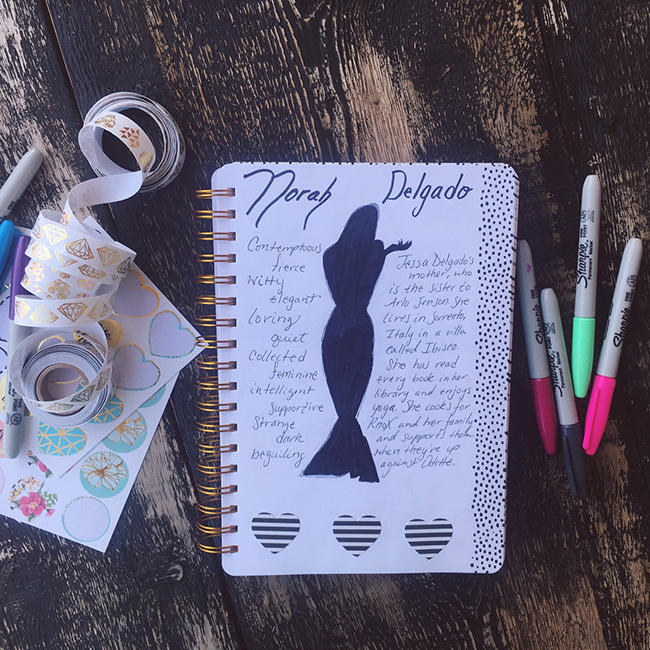 Norah Delgado
Contemptous
fierce
witty
elegant
loving
quiet
collected
feminine
intelligent
supportive
Strange
dark
beguiling
Jessa Delgado's
mother, who
is the sister to
Arlo Jenson. She
lives in Sorrento,
Italy in a villa
called Ibisco.
She has read
every book in her
library and enjoys
yoga. She cooks for
Knox and her family
and supports them
when they're up
against Odette.
Sharpie
Sharpie
Sharpie
Sharpie